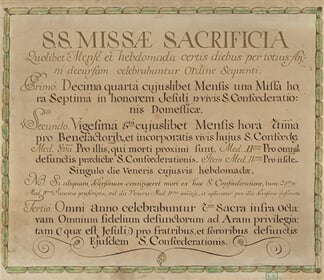 S.S. MISSÆ SACRIFICIA
Quolibet Mense et hebdomada certis diebus per totius An
ni decursum celebrabuntur Ordine Sequenti.
Primo. Decima quarta cujuslibet Mensis una Missa ho
ra Septima in honorem Jesuli in vivis S. Confœderatio
nis Domesticæ.
Secundo. Vigesima 5ta cujuslibet Mensis hora
pro Benefactorib. et incorporatis vivis hujus S. Confœdr.
Med. Pro illis, qui morti proximi sunt. Med. Pro omnib.
defunctis prædictæ S. Confœderationis. Item Med. Pro
Singulo die Veneris cujusvis hebdomadæ.
N.B. S. aliquam Personam contingeret mori ex hac S. Confœderatione, tunc
Med. præscripta, vel die Veneris Med. applicabitur pro illa Persona defuncta.
Tertio. Omni anno celebrabuntur Sacra infra octa
vam Omnium fidelium defunctorum ad Aram privilegia
tam (quæ est Jesuli) pro fratribus, et sororibus defunctis
Ejusdem S. Confœderationis.